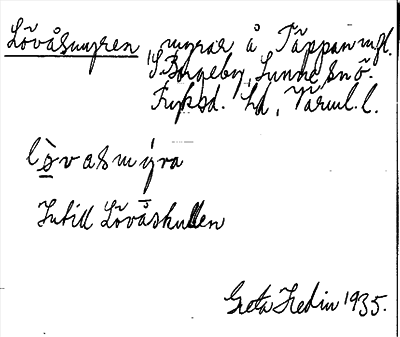 Lövåsmyren, myrar å Täppan mfl.
S. Borgeby, Sunne sn ö.
Fryksd. hd, Värml. l.
lòvasmýra
Intill Lövåskullen
Greta Hedin 1935.